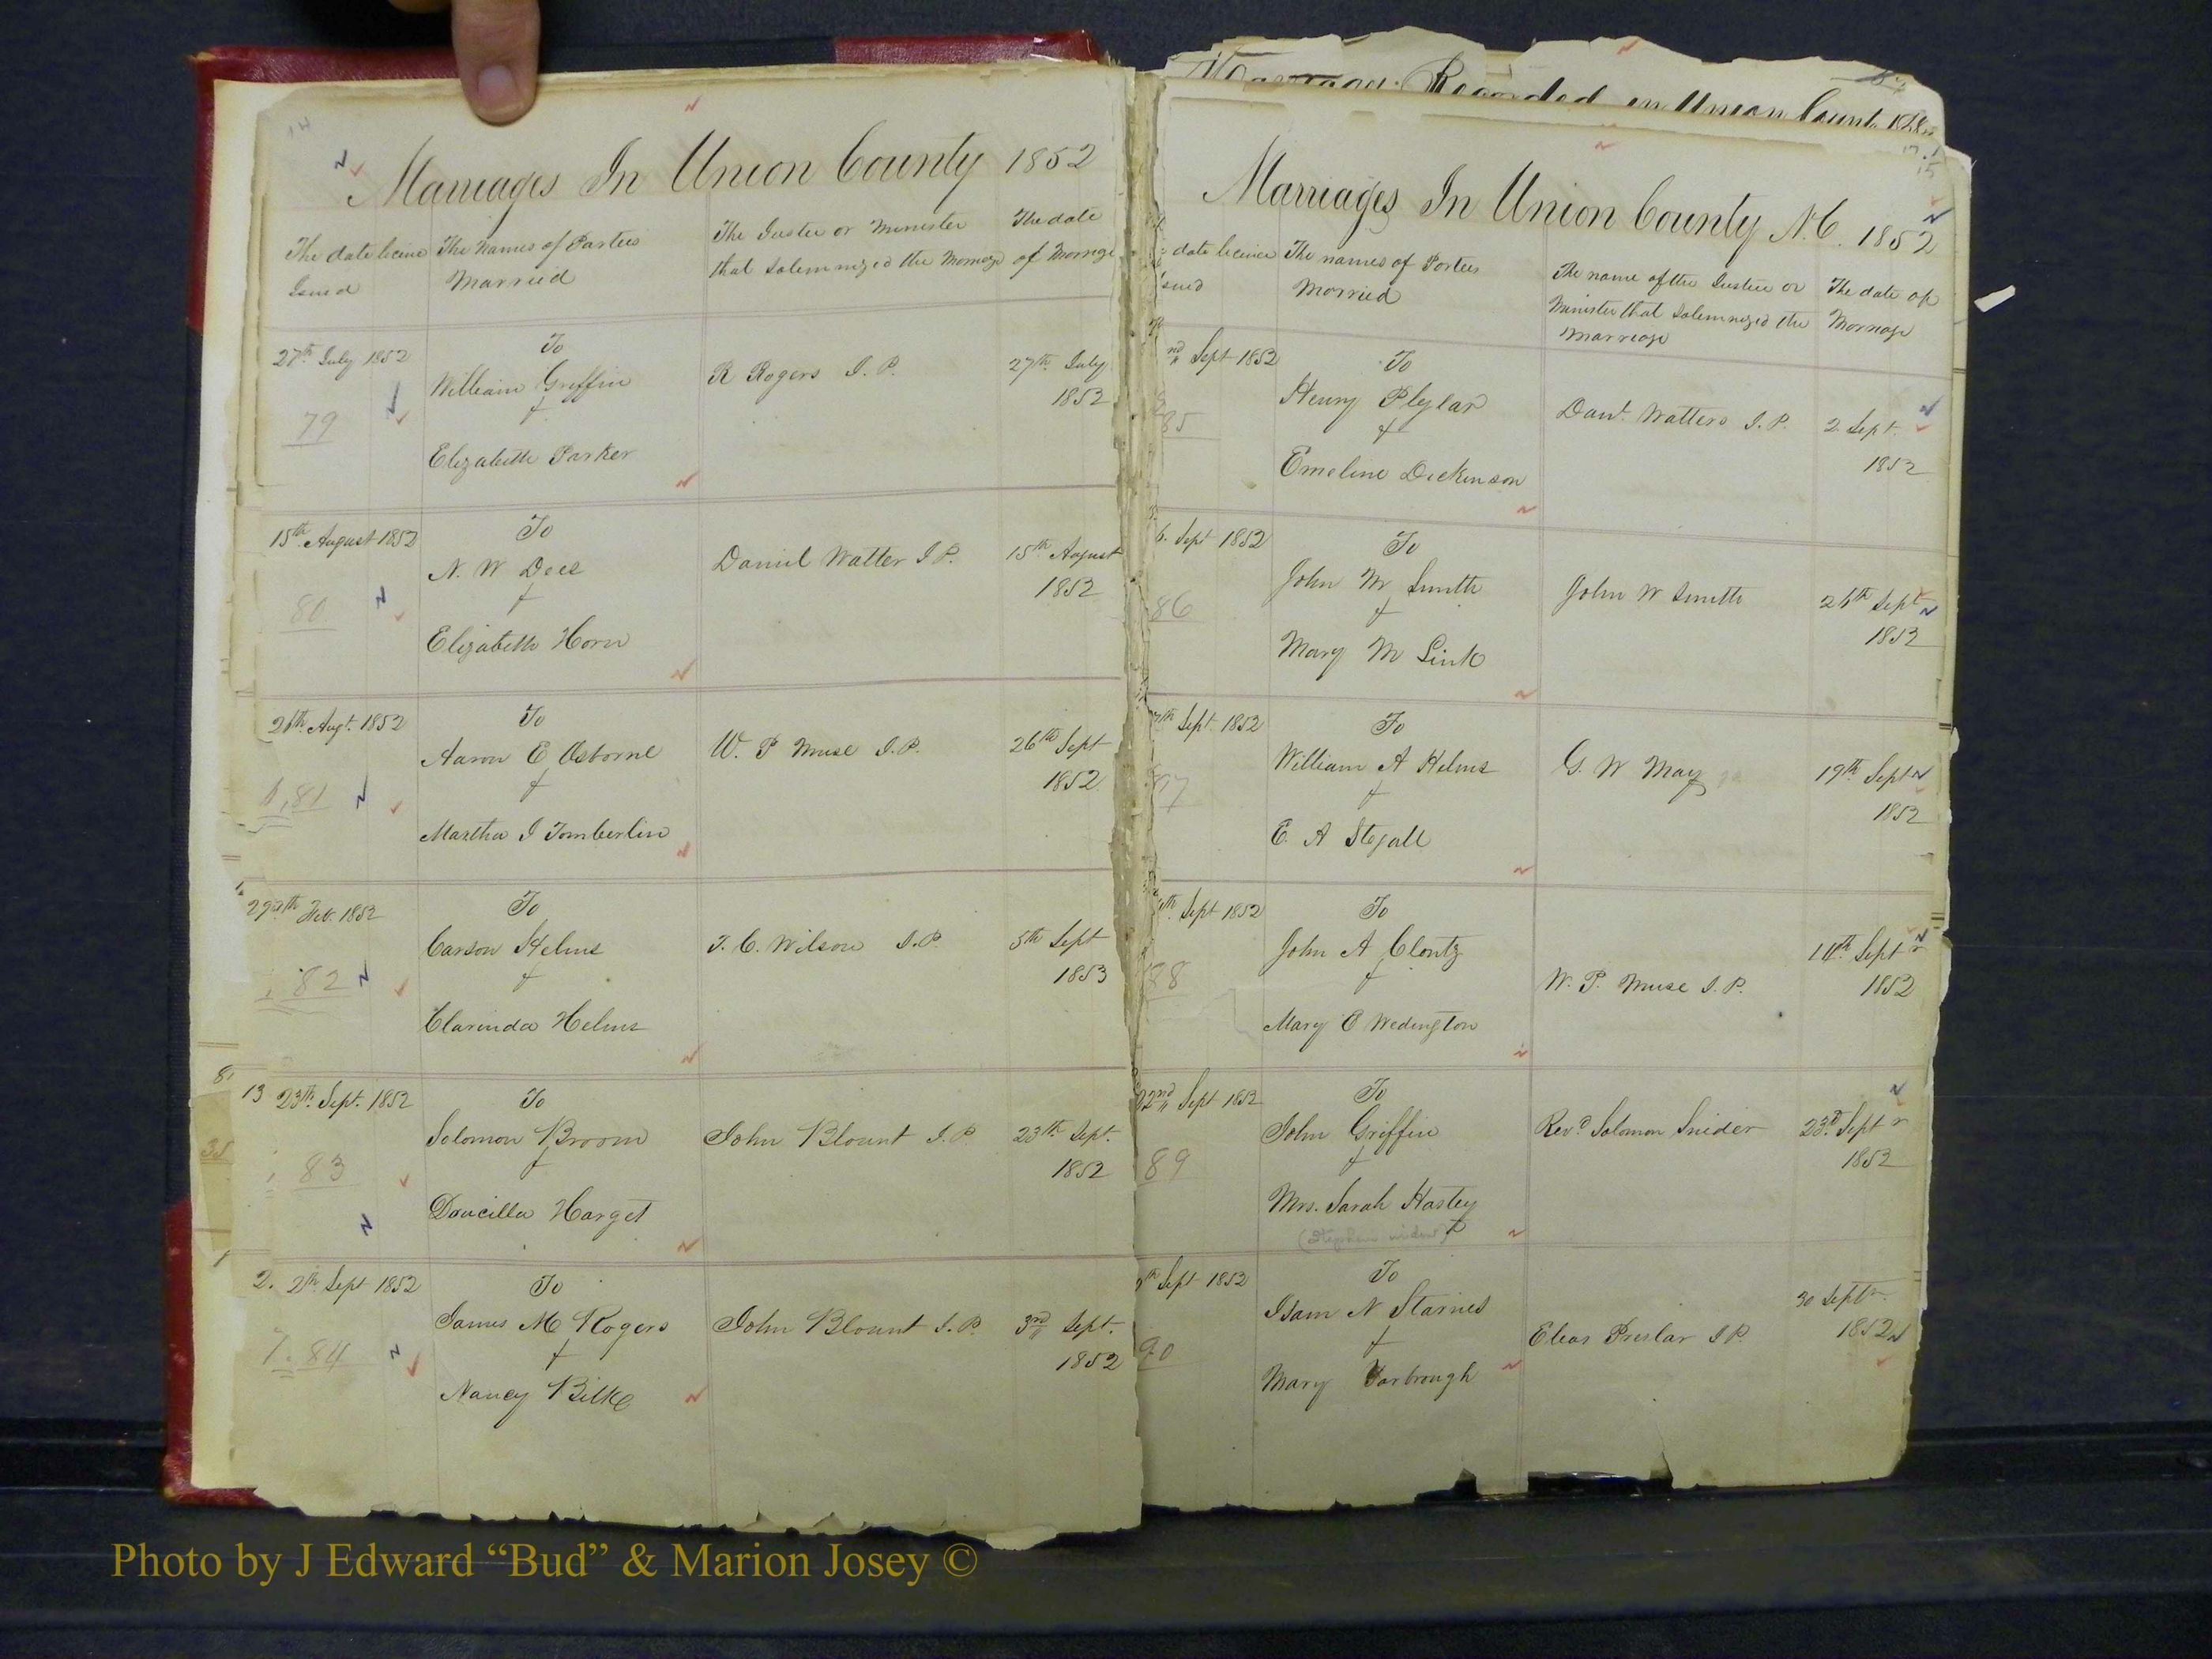 14
Marriages In Union County 1852
The date licine The Names of Parties The Justice or Minister The date
Issued Married that Solemnized the Marriage of Marriage
27th July 1852 To
William Griffin R Rogers J. P. 27th July
& 1852
79
Elizabeth Parker
15th August 1852 To
N. W Dees Daniel Walter J P. 15th August
& 1852
80
Elizabeth Horn
26th Augt. 1852 To
Aaron E Osborne W. P Muse J.P. 26th Sept
& 1852
81
Martha J Tomberlin
Feb. 1852 To
Carson Helms T. C. Wilson J.P. 5th Sept
& 1853
82
Clarinda Helms
13 23th Sept. 1852 To
Solomon Broom John Blount J. P 23th Sept.
& 1852
83
Harget
2. 2th Sept 1852 To
James M Rogers John Blount J. P. 3rd Sept.
& 1852
84
Nancy Bilke
Recorded in Union Count
15
Marriages In Union County N.C. 1852
date licence The names of Parties The name of the Justice or The date of
Married Minister that Solemnized the Marriage
Marriage
nd Sept 1852 To
Henry Plylar Danl. Watters J. P. 2 Sept.
& 1852
85
Emeline Dickinson
6. Sept 1852 To
John M Smith John W Smith Sept
& 1852
86
Mary M Link
7th Sept. 1852 To
William A Helms G. W May 19th Sept
& 1852
87
E. A Stegall
th Sept 1852 To
John A Clontz Sept
& W. P. Muse J. P. 1852
88
Mary E Wedington
22nd Sept 1852 To
John Griffin Revd Solomon Snider 23d Sept
& 1852
89
Mrs. Sarah Hasley
(Stephen widow)
th Sept 1852 To
Isam N Starnes 30 Sept
& Elias Preslar J P. 1852
90
Mary Yarbrough
Photo by J Edward “Bud” & Marion Josey ©